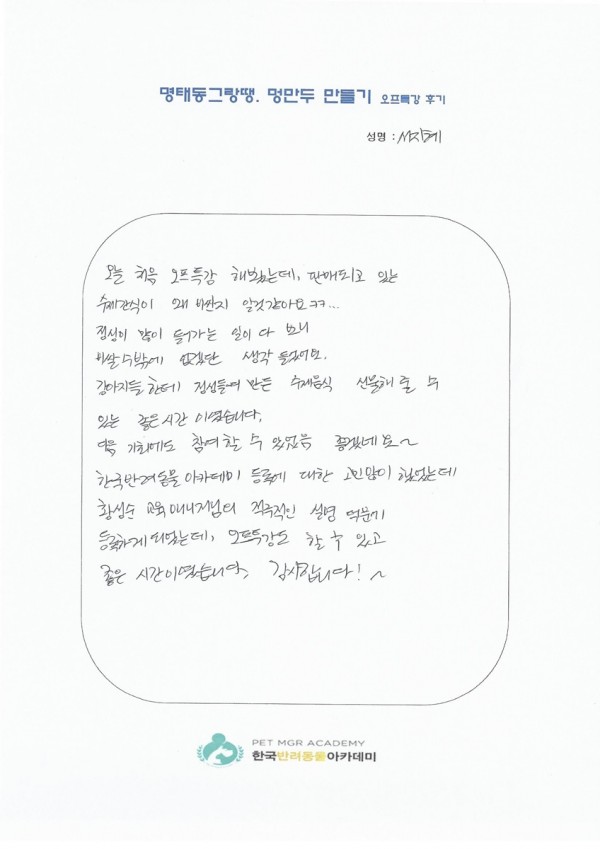 명태동그랑땡. 멍만두 만들기 오프특강 후기
성명 : 서지혜
오늘 처음 오프특강 해보았는데, 판매되고 있는
수제간식이 왜 비싼지 알것같아요ㅋㅋ...
정성이 많이 들어가는 일이 다 보니
비쌀수밖에 없겠단 생각 들었어요.
강아지들한테 정성들여 만든 수제음식 선물해 줄 수
있는 좋은시간 이였습니다.
다음 기회에도 참여할 수 있었음 좋겠네요~
한국반려동물아카데미 등록에 대한 고민많이 했었는데
황성순 교육매니저님의 적극적인 설명 덕분에
등록하게되었는데, 오프특강도 할 수 있고
좋은 시간이였습니다. 감사합니다! ~
PET MGR ACADEMY
한국반려동물아카데미